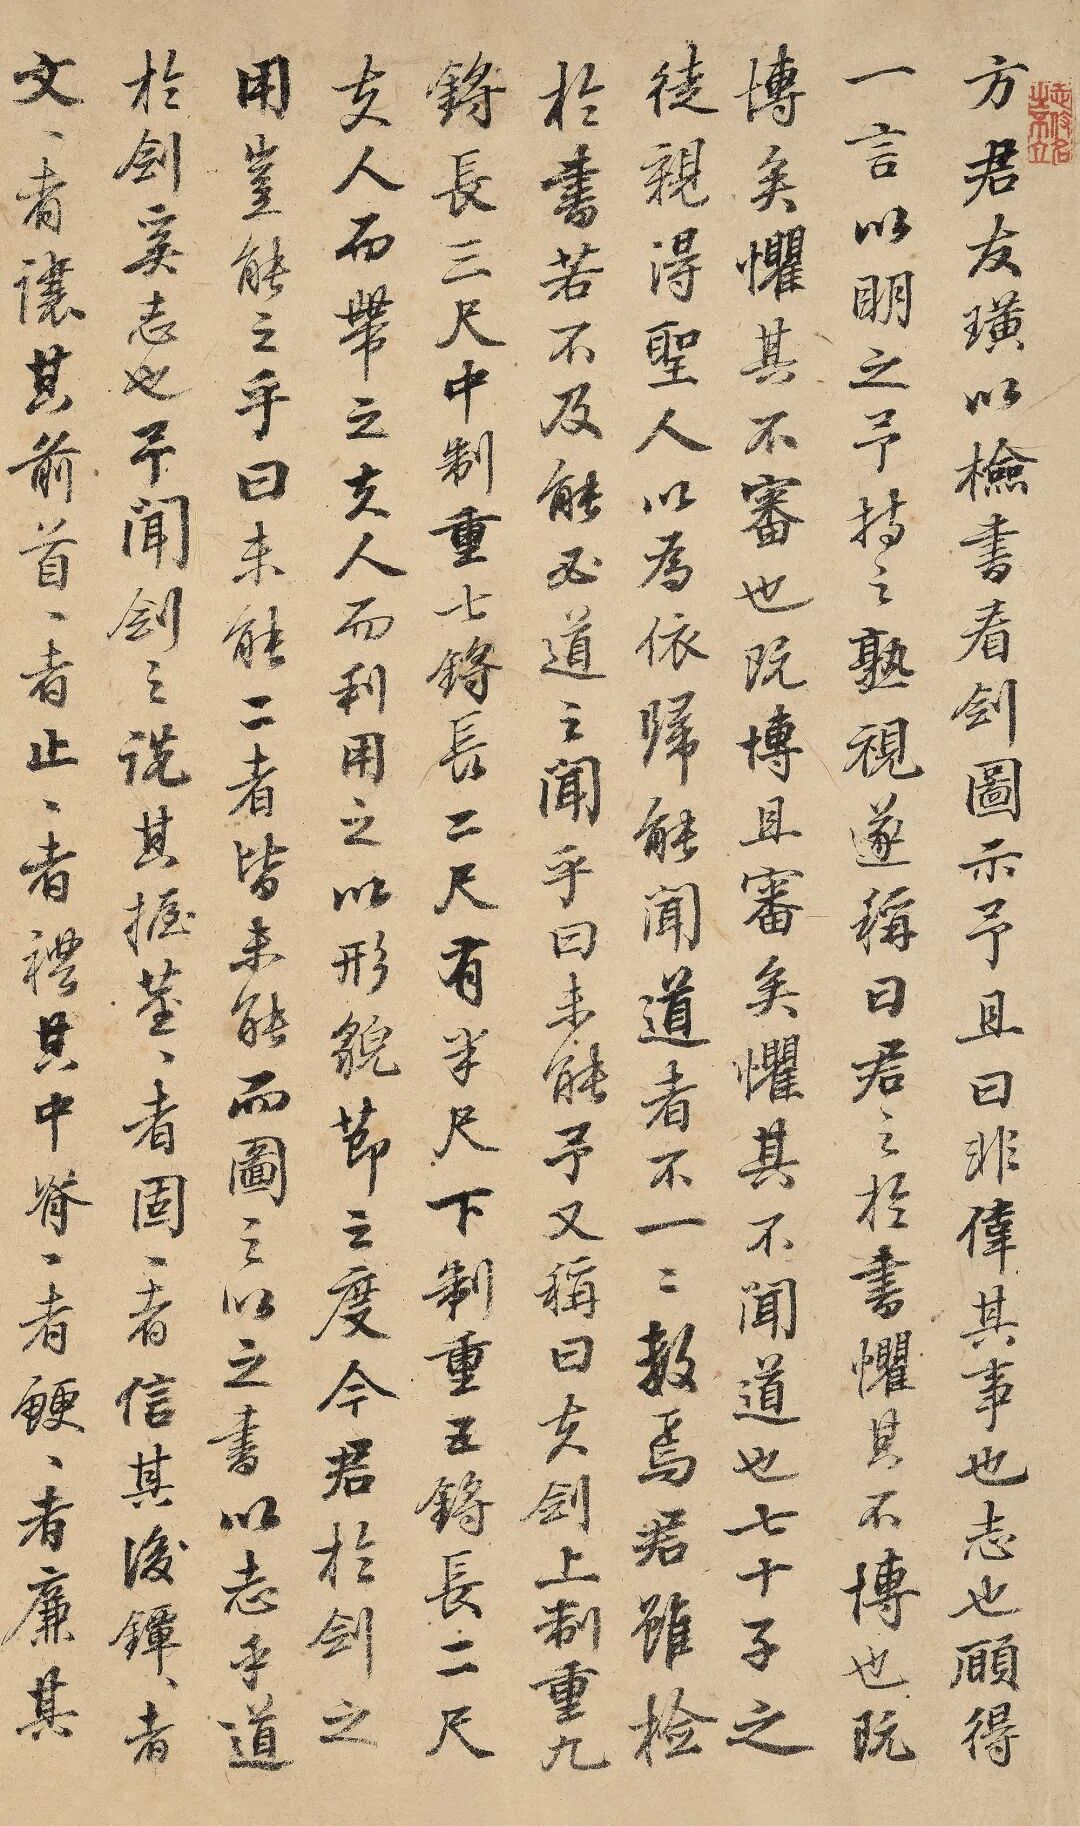 方君友璜以檢書看劍圖示予且曰非偉其事也志也願得
一言以明之予持之熟視遂稱曰君之於書懼其不博也既
博矣懼其不審也既博且審矣懼其不聞道也七十子之
徒親得聖人以為依歸能聞道者不一二數焉君雖檢
於書若不及能必道之聞乎曰未能予又稱曰夫劍上制重九
鋝長三尺中制重七鋝長二尺有半尺下制重五鋝長二尺
夫人而帶之夫人而利用之以形貌節之度今君於劍之
用豈能之乎曰未能二者皆未能而圖之以之書以志乎道
於劍奚志也予聞劍之說其握莖、者固、者信其後鐔、者
文、者讓其前首、者止、者禮其中脊、者鯁、者廉其